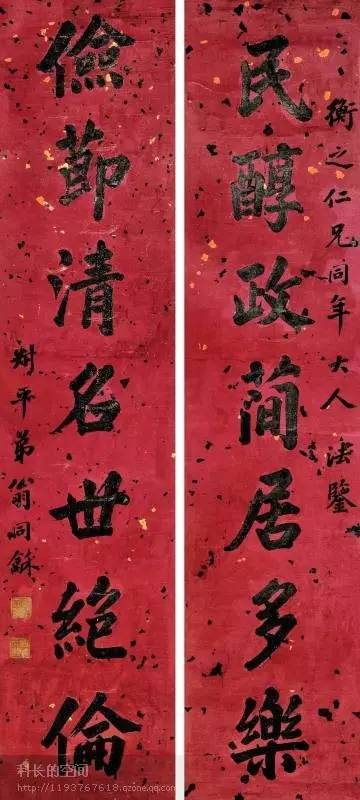 衡之仁兄同年大人法鑒
民醇政簡居多樂
儉節清名世絕倫
叔平弟翁同龢
科长的空间
http://1193767618.qzone.qq.com/